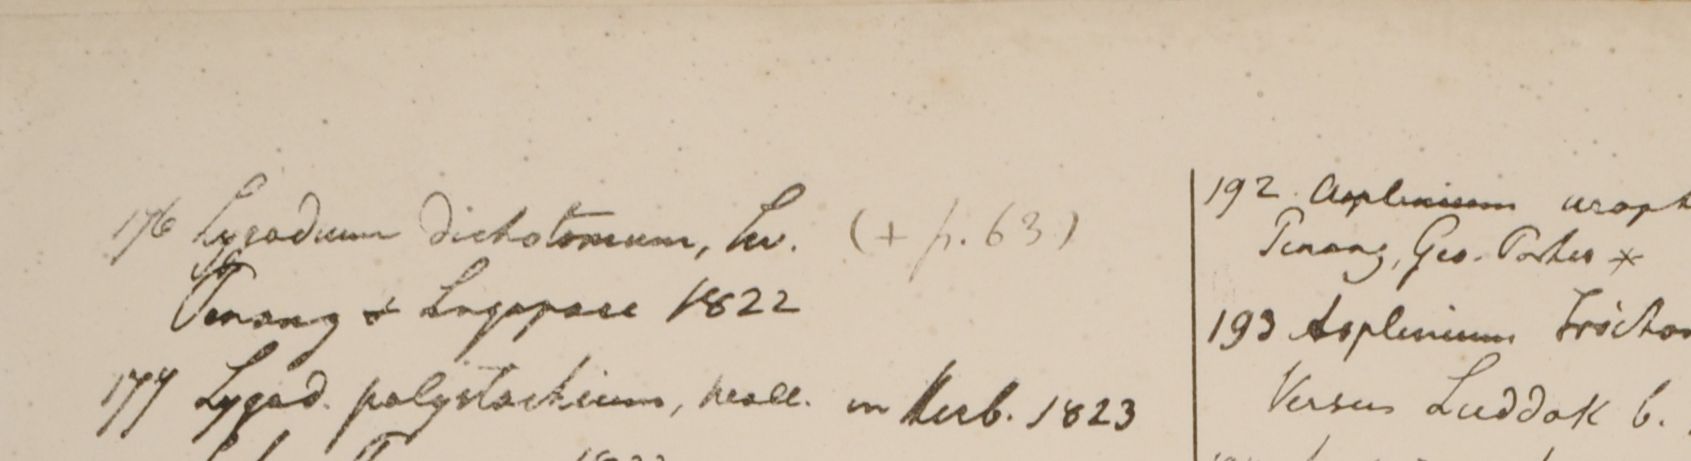 176 Lygodium dichotomum, Sw. (+ p. 63)
Penang & Singapore 1822
177 Lygod. polystachium, Wall. in Herb. 1823
192. Asplenium
Penang, Geo. Porter *
193 Asplenium
Versus Luddok b.